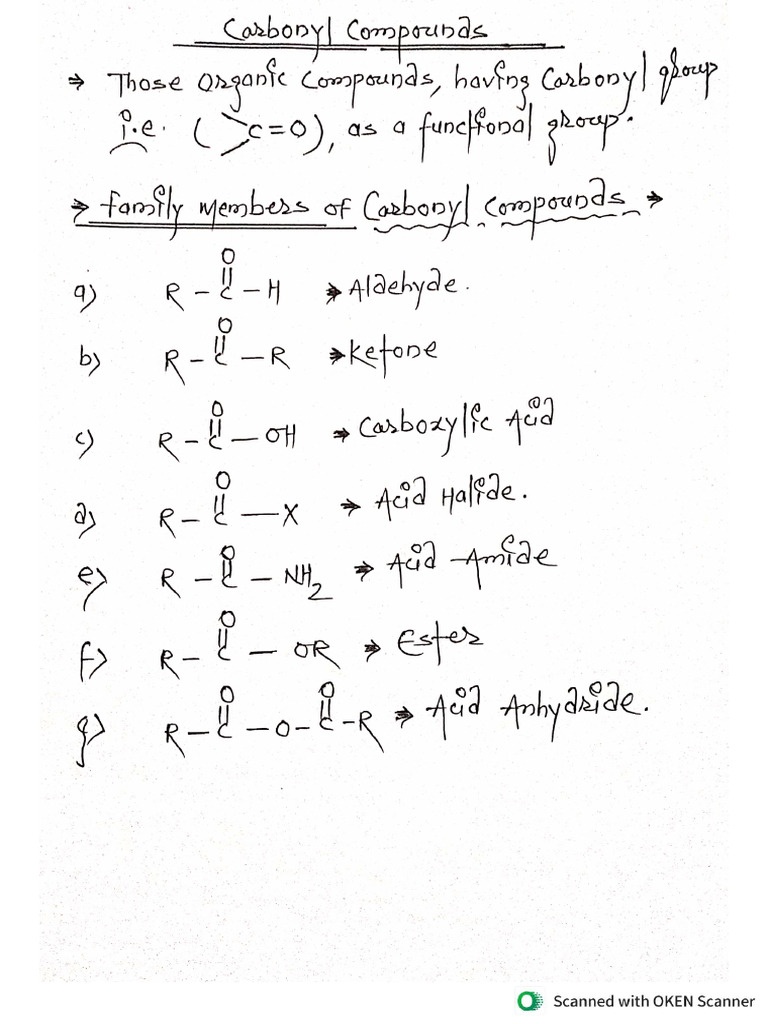 Carbonyl Compounds
⇒ Those Organic Compounds, having Carbonyl group
i.e. ( >C=O), as a functional group.
⇒ family members of Carbonyl Compounds ⇒
a) R-C(=O)-H ⇒ Aldehyde.
b) R-C(=O)-R ⇒ Ketone
c) R-C(=O)-OH ⇒ Carboxylic Acid
d) R-C(=O)-X ⇒ Acid Halide.
e) R-C(=O)-NH₂ ⇒ Acid-Amide
f) R-C(=O)-OR ⇒ Ester
g) R-C(=O)-O-C(=O)-R ⇒ Acid Anhydride.
Scanned with OKEN Scanner